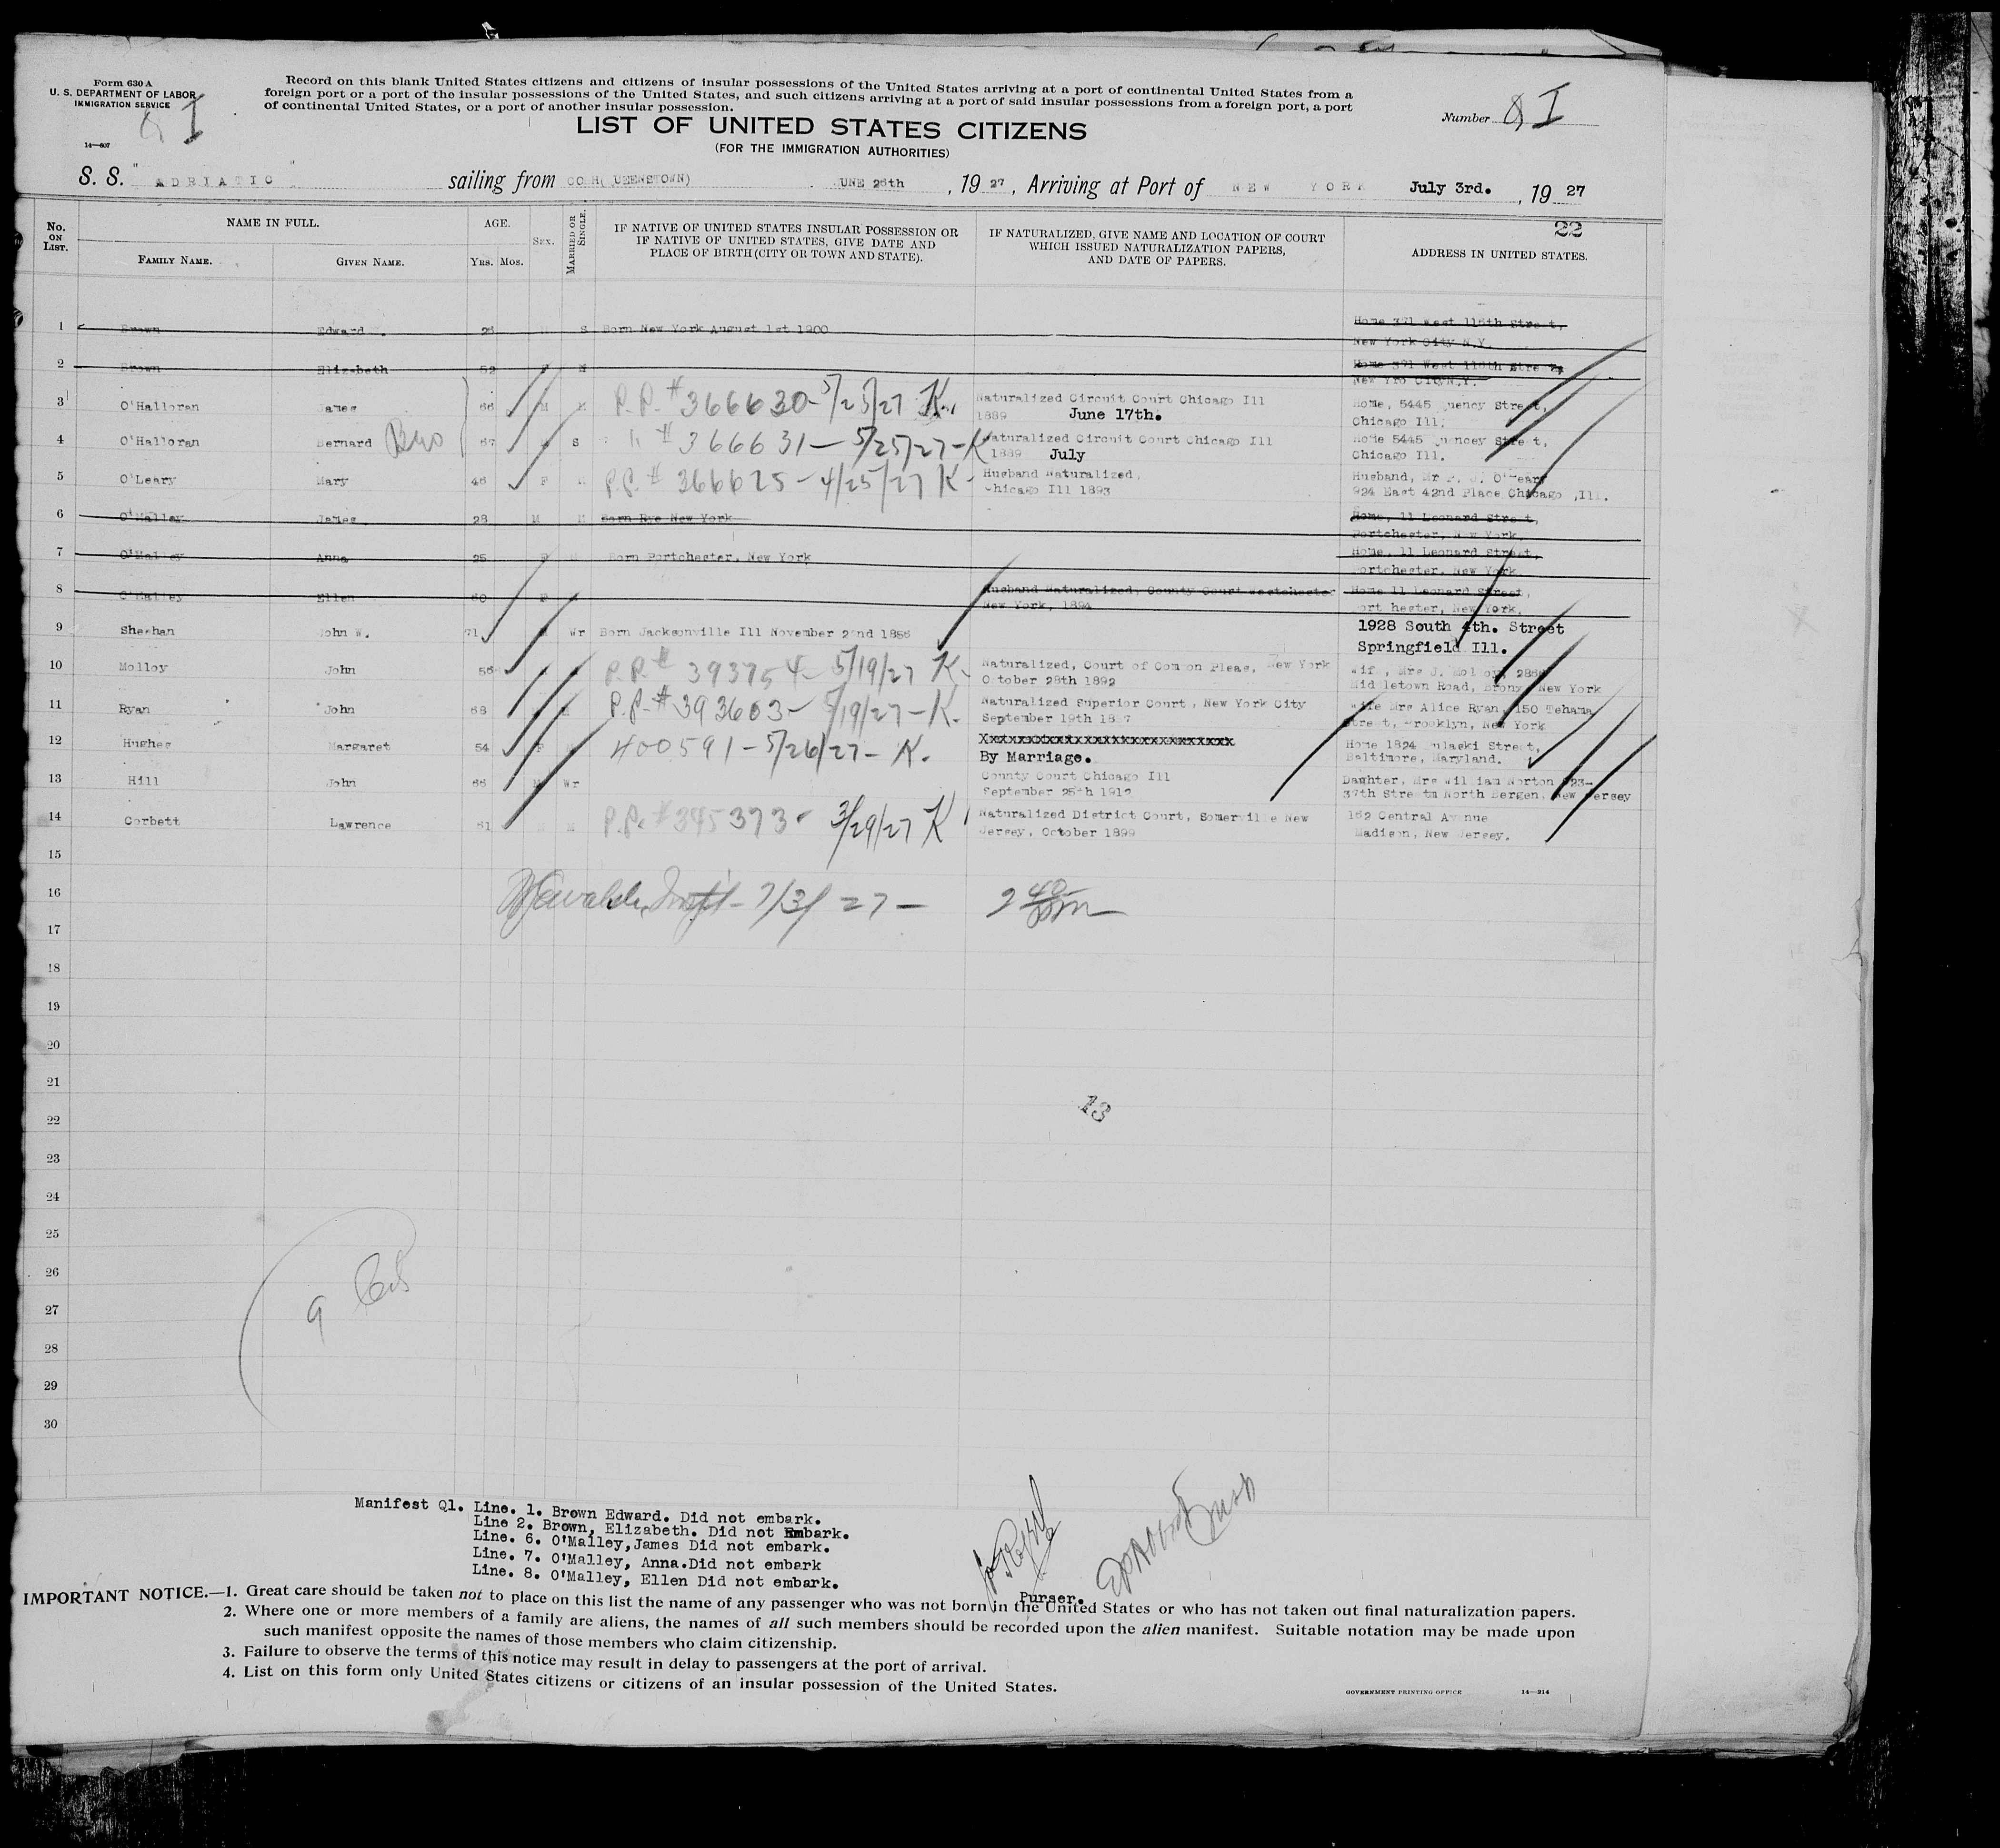 Form 630 A
U. S. DEPARTMENT OF LABOR
IMMIGRATION SERVICE
14—607
Record on this blank United States citizens and citizens of insular possessions of the United States arriving at a port of continental United States from a
foreign port or a port of the insular possessions of the United States, and such citizens arriving at a port of said insular possessions from a foreign port, a port
of continental United States, or a port of another insular possession.
Number Q I
Q I
LIST OF UNITED STATES CITIZENS
(FOR THE IMMIGRATION AUTHORITIES)
S. S. "ADRIATIC" sailing from CO H( UEENSTOWN) UNE 26th, 1927, Arriving at Port of NEW YORK July 3rd. , 1927
22
No. ON LIST. NAME IN FULL. FAMILY NAME. GIVEN NAME. AGE. YRS. MOS. SEX. MARRIED OR SINGLE.
IF NATIVE OF UNITED STATES INSULAR POSSESSION OR
IF NATIVE OF UNITED STATES, GIVE DATE AND
PLACE OF BIRTH (CITY OR TOWN AND STATE).
IF NATURALIZED, GIVE NAME AND LOCATION OF COURT
WHICH ISSUED NATURALIZATION PAPERS,
AND DATE OF PAPERS.
ADDRESS IN UNITED STATES.
1 Brown Edward 26 S Born New York August 1st 1900 Home 371 West 116th Street,
New York City N.Y.
2 Brown Eliz beth 52 F M Home 371 West 116th Street,
New Yro CityN.Y.
3 O'Halloran James 66 M P.P. #366630-5/25/27 K. Naturalized Circuit Court Chicago Ill Home, 5445 uency Street,
1889 June 17th. Chicago Ill.
4 O'Halloran Bernard Bro 67 S " # 366631—5/25/27-K Naturalized Circuit Court Chicago Ill Home 5445 uencey Street,
1889 July Chicago Ill.
5 O'Leary Mary 46 F P.P. # 366625-4/25/27 K- Husband Naturalized, Husband, Mr J. O'Leary
Chicago Ill 1893 924 East 42nd Place Chicago ,Ill.
6 O'Malley James 28 M M Born Rye New York Home, 11 Leonard Street,
Portchester, New York.
7 O'Malley Anna 25 F M Born Portchester, New York Home, 11 Leonard Street,
ortchester, New York.
8 O'Malley Ellen 60 F Husband Naturalized, County Court Westcheste Home 11 Leonard Street,
New York, 1894 ort hester, New York.
9 Sheehan John W. 71 Wr Born Jacksonville Ill November 22nd 1855 1928 South 4th. Street
Springfield Ill.
10 Molloy John 56 P.P.# 393754-5/19/27 K- Naturalized, Court of Com on Pleas, New York wif , Mrs J. Molloy, 286
O tober 28th 1892 Mid letown Road, Bronx New York
11 Ryan John 68 M P.P.#393603- 5/19/27-K. Naturalized Superior Court, New York City wife Mrs Alice Ryan, 150 Tehama
September 19th 18 7 Street, Brooklyn, New York
12 Hughes Margaret 54 F 400591-5/26/27- K. Home 1824 ulaski Street,
By Marriage. Baltimore, Maryland.
13 Hill John 66 M Wr County Court Chicago Ill Daughter, Mrs Wil iam Norton 923-
September 25th 1912 37th Stree tm North Bergen, New Jersey
14 Corbett Lawrence 61 M P.P. #345373- 3/29/27 K Naturalized District Court, Somerville New 162 Central Av nue
Jersey, October 1899 Madison, New Jersey.
15
16 7/3/27— 2 40 pm
17
18
19
20
21
22
13
23
24
25
26
27
9
28
29
30
Manifest Q1. Line. 1. Brown Edward. Did not embark.
Line 2. Brown, Elizabeth. Did not Embark.
Line. 6. O'Malley,James Did not embark.
Line. 7. O'Malley, Anna.Did not embark
Line. 8. O'Malley, Ellen Did not embark.
Purser.
IMPORTANT NOTICE.—1. Great care should be taken not to place on this list the name of any passenger who was not born in the United States or who has not taken out final naturalization papers.
2. Where one or more members of a family are aliens, the names of all such members should be recorded upon the alien manifest. Suitable notation may be made upon
such manifest opposite the names of those members who claim citizenship.
3. Failure to observe the terms of this notice may result in delay to passengers at the port of arrival.
4. List on this form only United States citizens or citizens of an insular possession of the United States.
GOVERNMENT PRINTING OFFICE 14—214